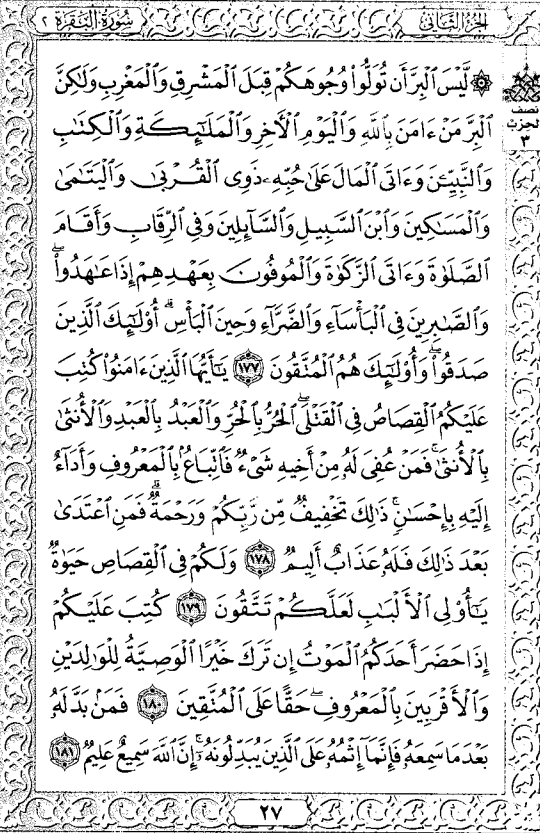 الجزء الثاني
سورة البقرة ٢
نصف
الحزب
٣
۞ لَّيْسَ ٱلْبِرَّ أَن تُوَلُّوا۟ وُجُوهَكُمْ قِبَلَ ٱلْمَشْرِقِ وَٱلْمَغْرِبِ وَلَـٰكِنَّ
ٱلْبِرَّ مَنْ ءَامَنَ بِٱللَّهِ وَٱلْيَوْمِ ٱلْـَٔاخِرِ وَٱلْمَلَـٰٓئِكَةِ وَٱلْكِتَـٰبِ
وَٱلنَّبِيِّـۧنَ وَءَاتَى ٱلْمَالَ عَلَىٰ حُبِّهِۦ ذَوِى ٱلْقُرْبَىٰ وَٱلْيَتَـٰمَىٰ
وَٱلْمَسَـٰكِينَ وَٱبْنَ ٱلسَّبِيلِ وَٱلسَّآئِلِينَ وَفِى ٱلرِّقَابِ وَأَقَامَ
ٱلصَّلَوٰةَ وَءَاتَى ٱلزَّكَوٰةَ وَٱلْمُوفُونَ بِعَهْدِهِمْ إِذَا عَـٰهَدُوا۟ ۖ
وَٱلصَّـٰبِرِينَ فِى ٱلْبَأْسَآءِ وَٱلضَّرَّآءِ وَحِينَ ٱلْبَأْسِ ۗ أُو۟لَـٰٓئِكَ ٱلَّذِينَ
صَدَقُوا۟ ۖ وَأُو۟لَـٰٓئِكَ هُمُ ٱلْمُتَّقُونَ ١٧٧ يَـٰٓأَيُّهَا ٱلَّذِينَ ءَامَنُوا۟ كُتِبَ
عَلَيْكُمُ ٱلْقِصَاصُ فِى ٱلْقَتْلَى ۖ ٱلْحُرُّ بِٱلْحُرِّ وَٱلْعَبْدُ بِٱلْعَبْدِ وَٱلْأُنثَىٰ
بِٱلْأُنثَىٰ ۚ فَمَنْ عُفِىَ لَهُۥ مِنْ أَخِيهِ شَىْءٌ فَٱتِّبَاعٌۢ بِٱلْمَعْرُوفِ وَأَدَآءٌ
إِلَيْهِ بِإِحْسَـٰنٍ ۗ ذَٰلِكَ تَخْفِيفٌ مِّن رَّبِّكُمْ وَرَحْمَةٌ ۗ فَمَنِ ٱعْتَدَىٰ
بَعْدَ ذَٰلِكَ فَلَهُۥ عَذَابٌ أَلِيمٌ ١٧٨ وَلَكُمْ فِى ٱلْقِصَاصِ حَيَوٰةٌ
يَـٰٓأُو۟لِى ٱلْأَلْبَـٰبِ لَعَلَّكُمْ تَتَّقُونَ ١٧٩ كُتِبَ عَلَيْكُمْ
إِذَا حَضَرَ أَحَدَكُمُ ٱلْمَوْتُ إِن تَرَكَ خَيْرًا ٱلْوَصِيَّةُ لِلْوَٰلِدَيْنِ
وَٱلْأَقْرَبِينَ بِٱلْمَعْرُوفِ ۖ حَقًّا عَلَى ٱلْمُتَّقِينَ ١٨٠ فَمَنۢ بَدَّلَهُۥ
بَعْدَمَا سَمِعَهُۥ فَإِنَّمَآ إِثْمُهُۥ عَلَى ٱلَّذِينَ يُبَدِّلُونَهُۥٓ ۚ إِنَّ ٱللَّهَ سَمِيعٌ عَلِيمٌ ١٨١
٢٧